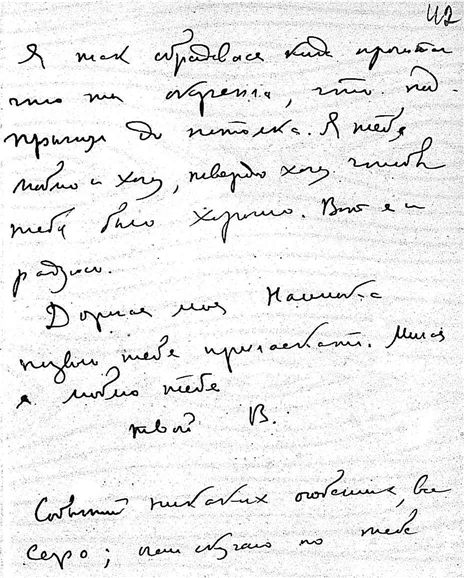 42
Я так обрадовался когда прочитал
что ты окрепла, что под-
прыгнула до потолка. Я тебя
люблю и хочу, твердо хочу чтобы
тебе было хорошо. Вот я и
радуюсь.
Дорогая моя
тебе приласкать. Милая
я люблю тебя
твой В.
Событий никаких особенных, все
серо; скучаю по тебе